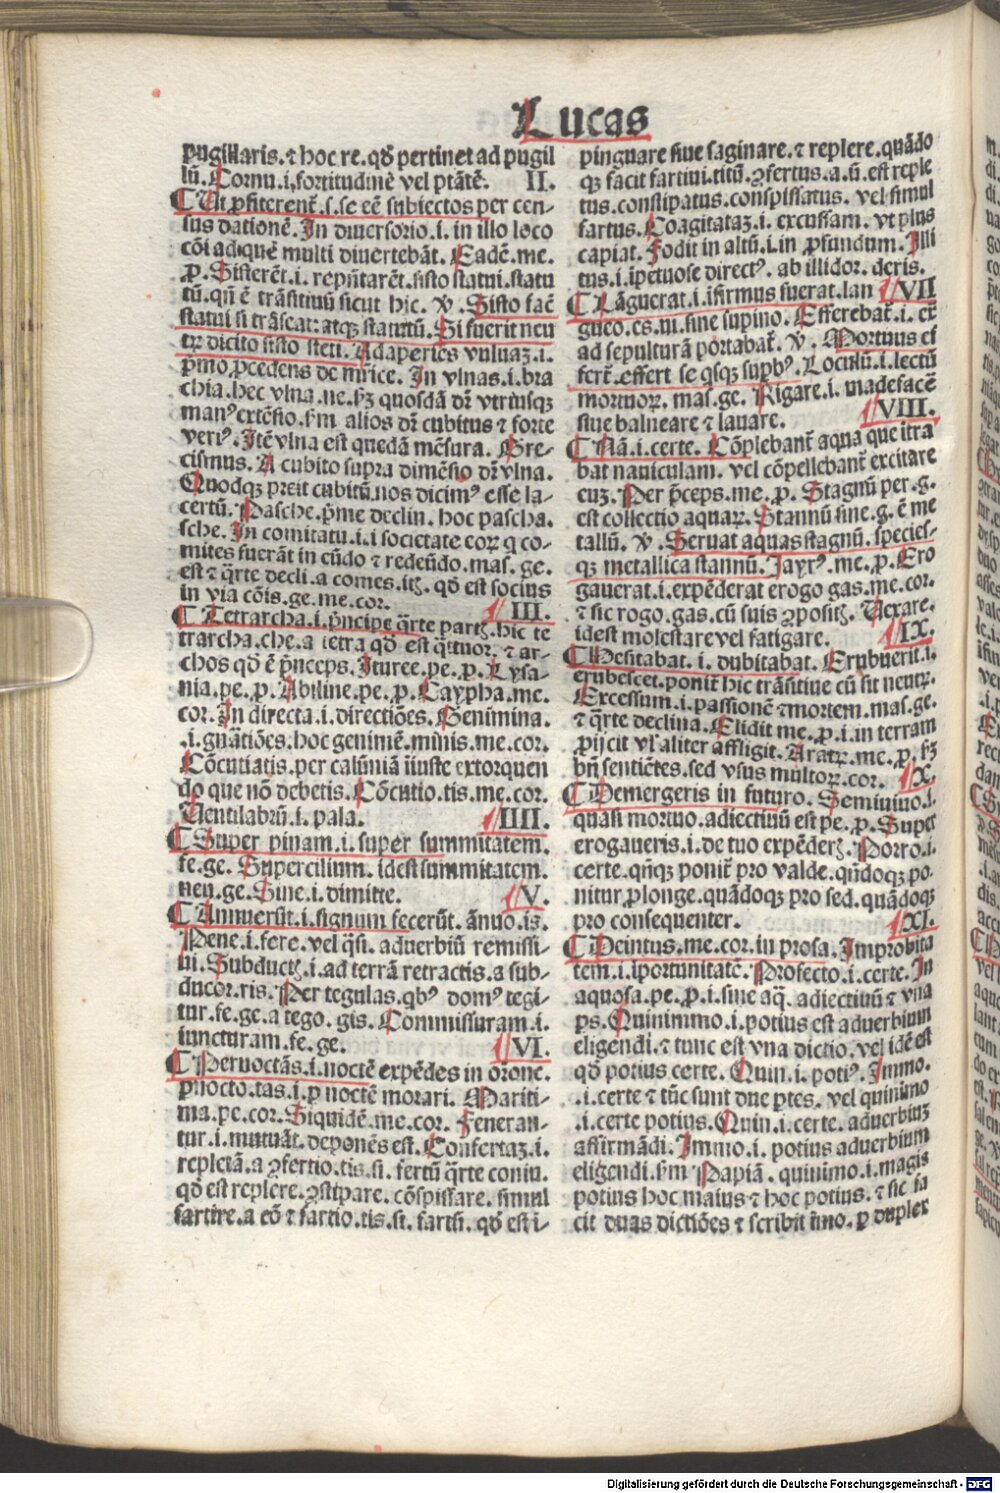 Lucas
pugillaris. ⁊ hoc re. qđ pertinet ad pugil
lū. Cornu .i. fortitudinē vel ptātē. II.
¶ Ut ꝓfiterent̄ .s. se eē subiectos per cen-
sus dationē. In diuersorio .i. in illo loco
cōi ad quē multi diuertebāt. Eadē. me.
ꝓ. Sisterēt .i. repn̄tarēt. sisto statui. statu
tū. qn̄ ē trāsitiuū sicut hic. ꝟ. Sisto facē
statui si trāseat: atqꝫ statutū. Si fuerit neu
tꝝ dicito sisto steti. Adaperies vuluaꝫ .i.
p̄mo ꝓcedens de mr̄ice. In vlnas .i. bra
chia. hec vlna. ne. hꝫ quosdā dr̄ vtriusqꝫ
manꝰ extēsio. ẜm alios dr̄ cubitus ⁊ forte
veriꝰ. Itē vlna est quedā mēsura. Gre-
cismus. A cubito supra dimēsio dr̄ vlna.
Quodqꝫ preit cubitū. nos dicimꝰ esse la-
certū. Pasche. p̄me declin. hoc pascha.
sche. In comitatu .i. i societate eoꝝ q̄ co-
mites fuerāt in eūdo ⁊ redeūdo. mas. ge.
est ⁊ q̄rte decli. a comes. itꝭ. qđ est socius
in via cōis. ge. me. cor. III.
¶ Tetrarcha .i. p̄ncipe q̄rte partꝭ. hic te
trarcha. che. a tetra qđ est q̄ttuor. ⁊ ar-
chos qđ ē p̄nceps. Ituree. pe. ꝓ. Lysa-
nia. pe. ꝓ. Abiline. pe. ꝓ. Caypha. me.
cor. In directa .i. directiōes. Genimina.
.i. gn̄atiōes. hoc genimē. minis. me. cor.
Cōcutiatis. per calūniā iniuste extorquen
do que nō debetis. Cōcutio. tis. me. cor.
Uentilabrū .i. pala. IIII.
¶ Super pinam .i. super summitatem.
fe. ge. Supercilium. idest summitatem.
neu. ge. Sine .i. dimitte. V.
¶ Annuerūt .i. signum fecerūt. ānuo. is.
Pene .i. fere. vel q̄si. aduerbiū remissi-
ui. Subductꝭ .i. ad terrā retractis. a sub-
ducor. ris. Per tegulas. qbꝰ domꝰ tegi-
tur. fe. ge. a tego. gis. Commissuram .i.
iuncturam. fe. ge. VI.
¶ Pernoctās .i. noctē expēdes in oīone.
p̱nocto. tas .i. p̱ noctē morari. Mariti-
ma. pe. cor. Siquidē. me. cor. Feneran-
tur .i. mutuāt. deponēs est. Confertaꝫ .i.
repletā. a ꝯfertio. tis. si. fertū q̄rte coniu.
qđ est replere. ꝯstipare. cōspissare. simul
fartire. a cō ⁊ fartio. tis. si. fartū. qđ est i-
pinguare siue saginare. ⁊ replere. quādo
qꝫ facit fartiui. titū. ꝯfertus. a. ū. est reple
tus. constipatus. conspissatus. vel simul
fartus. Coagitataꝫ .i. excussam. vt plus
capiat. Fodit in altū .i. in ꝓfundum. Illi
tus .i. ipetuose directꝰ. ab illidor. deris.
¶ Lāguerat .i. ifirmus fuerat. lan VII
gueo. es. ui. sine supino. Efferebat̄ .i. ex
ad sepulturā portabat̄. ꝟ. Mortuus ef
fert̄. effert se qsqꝫ supbꝰ. Loculū .i. lectū
mortuoꝝ. mas. ge. Rigare .i. madefacē
siue balneare ⁊ lauare. VIII.
¶ Nā .i. certe. Cōplebant̄ aqua que itra
bat nauiculam. vel cōpellebant̄ excitare
eūꝫ. Per p̄ceps. me. ꝓ. Stagnū per .g.
est collectio aquaꝝ. Stannū sine .g. ē me
tallū. ꝟ. Seruat aquas stagnū. species-
qꝫ metallica stannū. Jayrꝰ. me. ꝓ. Ero
gauerat .i. expēderat erogo gas. me. cor.
⁊ sic rogo. gas. cū suis ꝯpositꝭ. Uexare.
idest molestare vel fatigare. IX.
¶ Hesitabat .i. dubitabat. Erubuerit .i.
erubescet. ponit̄ hic trāsitiue cū sit neutꝝ.
Excessum .i. passionē ⁊ mortem. mas. ge.
⁊ q̄rte declina. Elidit me. ꝓ .i. in terram
ꝓijcit vl̓ aliter affligit. Aratꝝ. me. ꝓ. ẜꝫ
bn̄ sentiētes. sed vsus multoꝝ. cor. X.
¶ Demergeris in futuro. Semiuiuo .i.
quasi mortuo. adiectiuū est pe. ꝓ. Super
erogaueris .i. de tuo expēderꝭ. Porro .i.
certe. qn̄qꝫ ponit̄ pro valde. qn̄doqꝫ po
nitur ꝓ longe. quādoqꝫ pro sed. quādoqꝫ
pro consequenter. XI.
¶ Deintus. me. cor. in prosa. Improbita
tem .i. iportunitatē. Profecto .i. certe. In
aquosa. pe. ꝓ .i. sine aq̄. adiectiuū ⁊ vna
ps. Quinimmo .i. potius est aduerbium
eligendi. ⁊ tunc est vna dictio. vel idē est
qđ potius certe. Quin .i. potiꝰ. Immo.
.i. certe ⁊ tūc sunt due ptes. vel quinimo
.i. certe potius. Quin .i. certe. aduerbiuꝫ
affirmādi. Immo .i. potius aduerbium
eligendi. ẜm Papiā. quinimo .i. magis
potius hoc maius ⁊ hoc potius. ⁊ sic fa
cit duas dictiōes ⁊ scribit īmo. ꝑ duplex
Digitalisierung gefördert durch die Deutsche Forschungsgemeinschaft - DFG